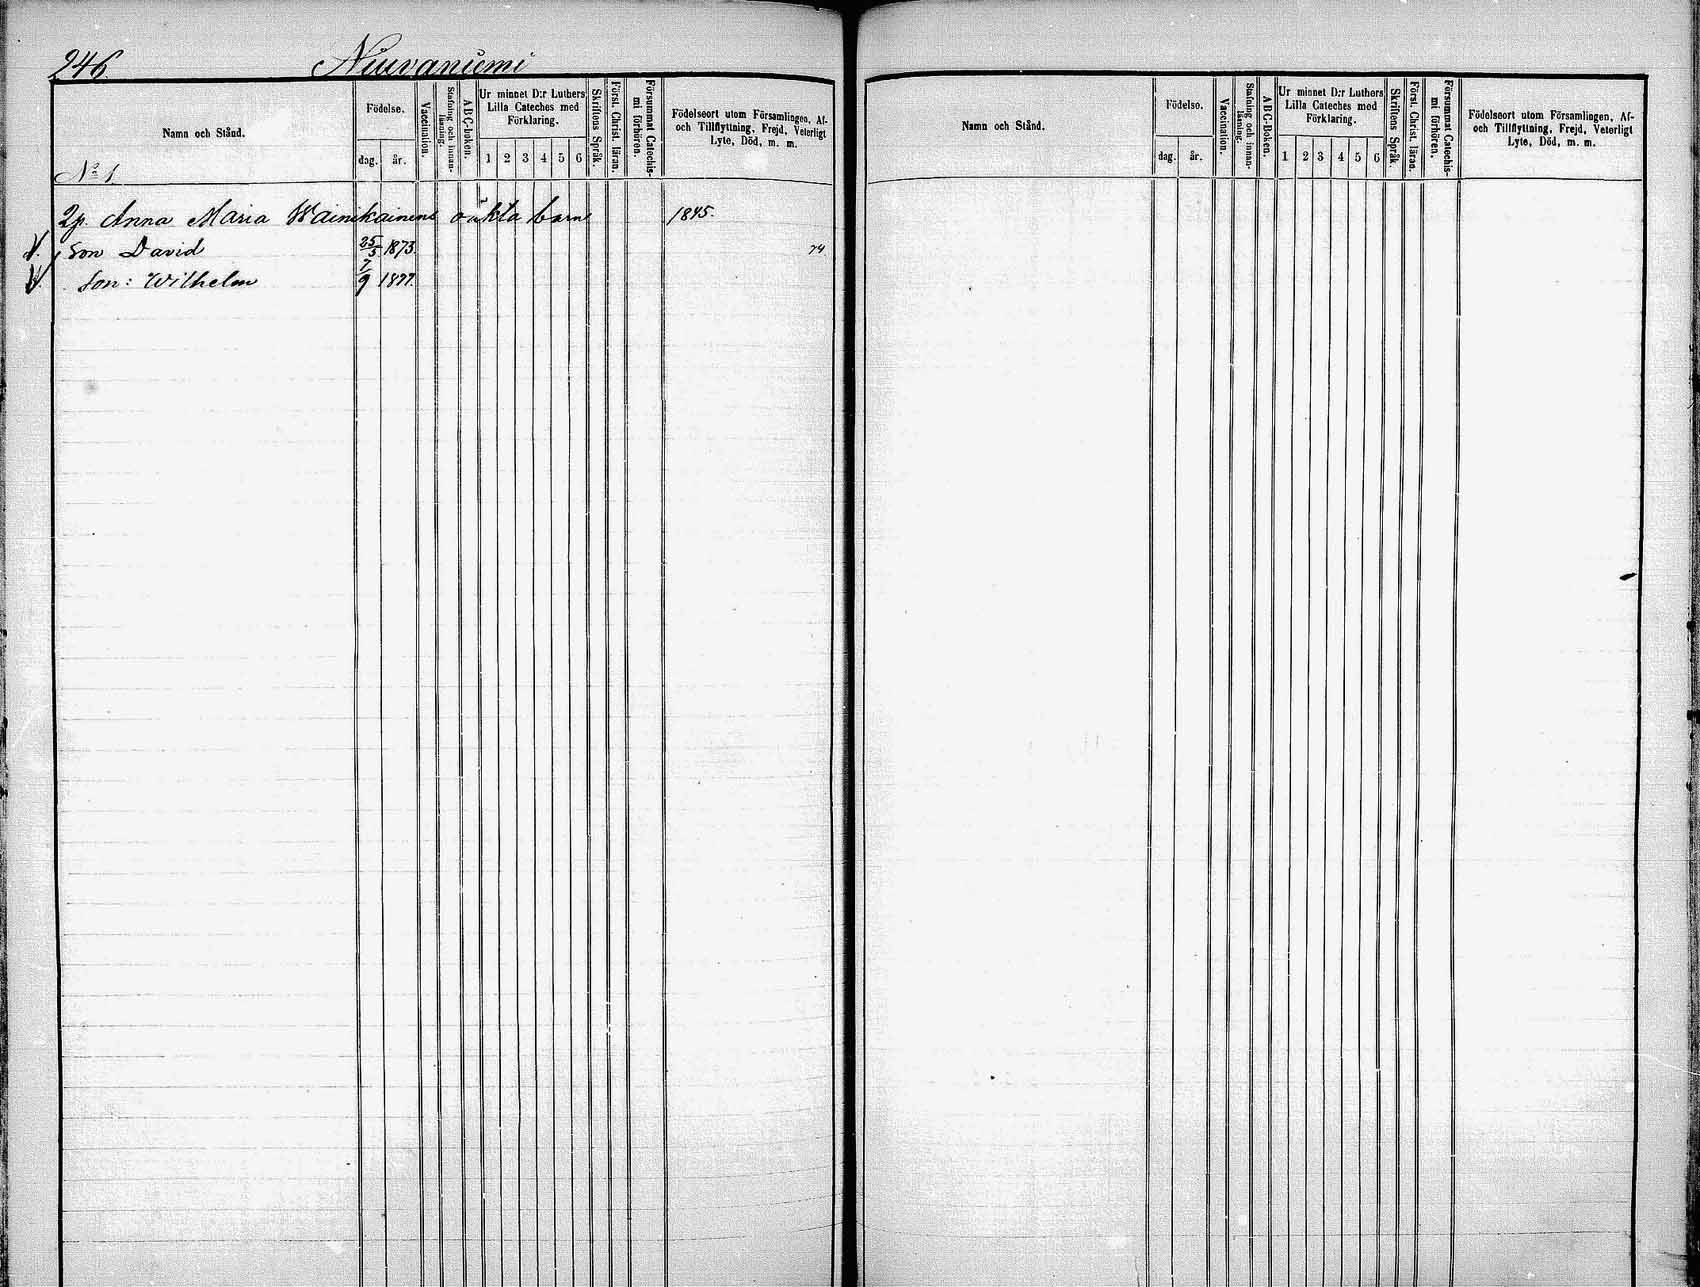 246 Niuvaniemi
Namn och Stånd.
Födelse.
dag. år.
Vaccination.
Stafning och innan-läsning.
ABC-boken.
Ur minnet D:r Luthers
Lilla Cateches med
Förklaring.
1 2 3 4 5 6
Skriftens Språk.
Först. Christ. läran.
Försummat Catechis-
mi förhören.
Födelseort utom Församlingen, Af-
och Tillflyttning, Frejd, Veterligt
Lyte, Död, m. m.
No 1
2p. Anna Maria Wainikainens oäkta barn 1845.
Son David 25/5 1873. 74
Son: Wilhelm 7/9 1877.
Namn och Stånd.
Födelse.
dag. år.
Vaccination.
Stafning och innan-läsning.
ABC-Boken.
Ur minnet D:r Luthers
Lilla Cateches med
Förklaring.
1 2 3 4 5 6
Skriftens Språk.
Först. Christ. läran.
Försummat Catechis-
mi förhören.
Födelseort utom Församlingen, Af-
och Tillflyttning, Frejd, Veterligt
Lyte, Död, m. m.